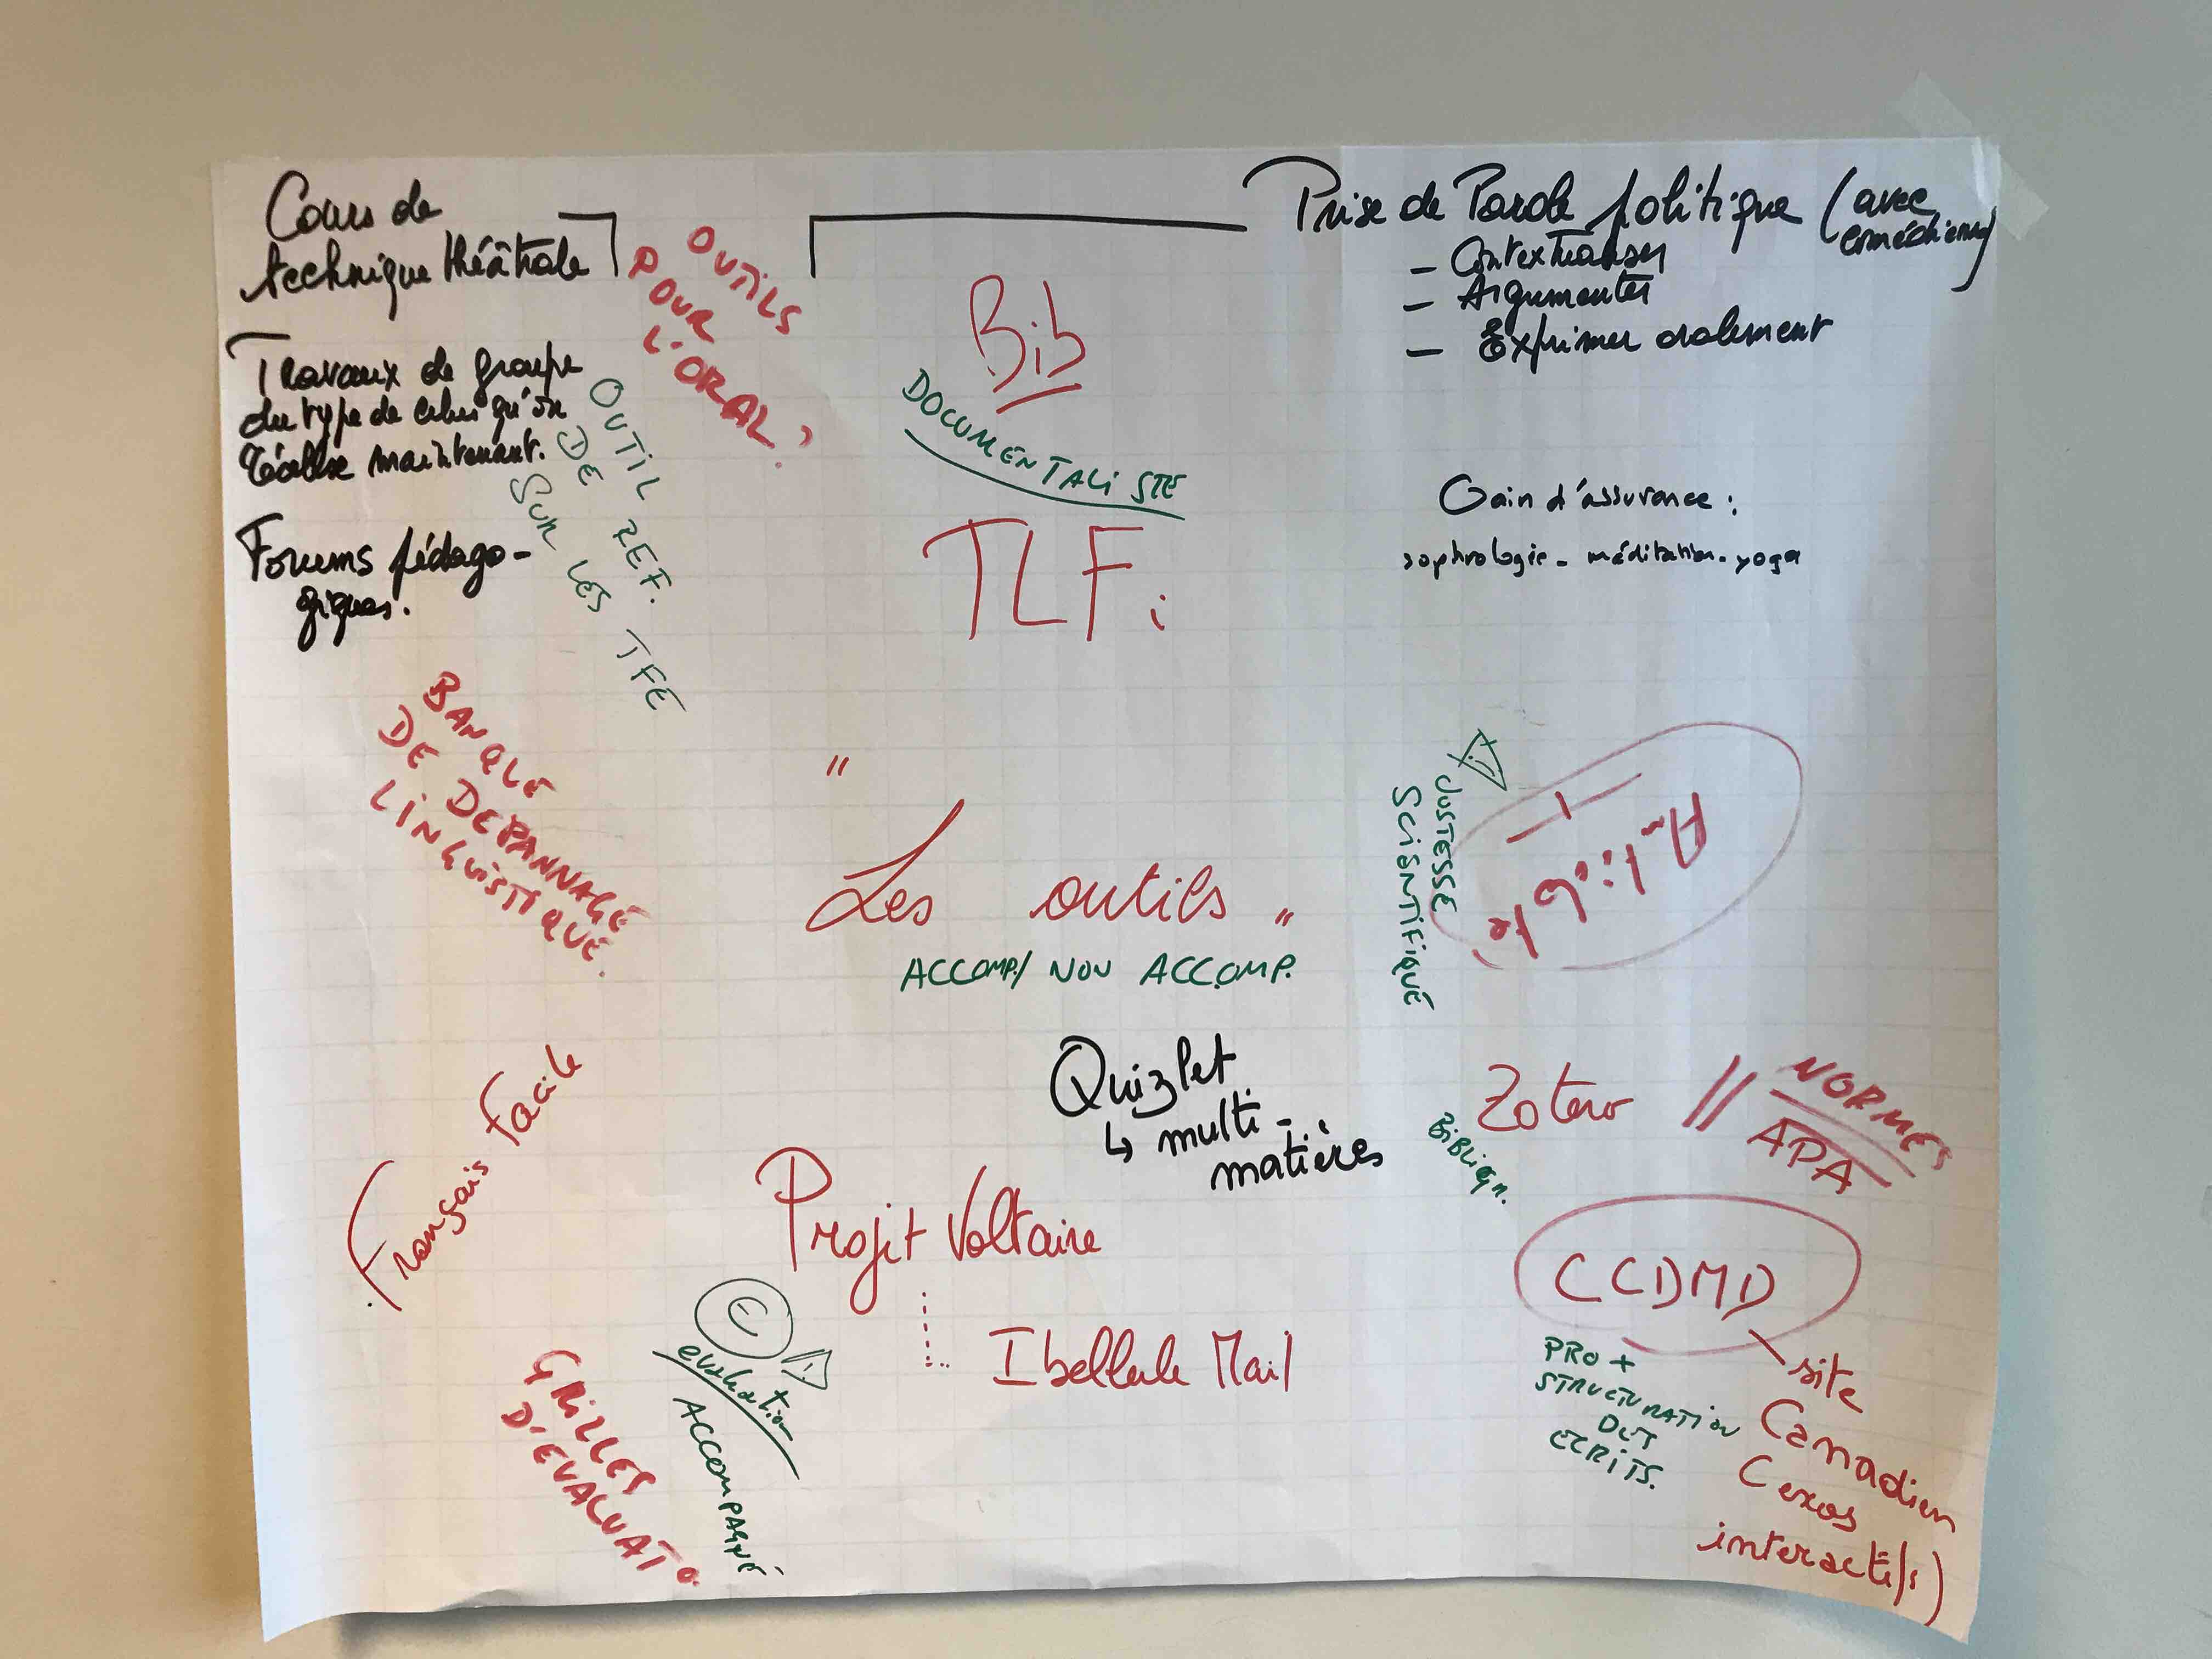 Cours de
technique théâtrale
OUTILS
POUR
L'ORAL?
Prise de Parole politique (avec
comédiens)
- Contextualiser
- Argumenter
- Exprimer oralement
Bib
DOCUMENTALISTE
TLFi
Travaux de groupe
du type de celui qu'on
réalise maintenant.
OUTIL
DE REF.
SUR LES TFE
Forums pédago-
giques.
Gain d'assurance :
sophrologie - méditation - yoga
BANQUE
DE DEPANNAGE
LINGUISTIQUE.
"
Les outils "
ACCOMP./ NON ACCOMP.
JUSTESSE
SCIENTIFIQUE
Antidote
Quizlet
↳ multi-
matières
Zotero // NORMES
APA
BIBLIOGR.
Français facile
Projet Voltaire
Ibellule Mail
CCDMD
site
Canadien
(exos
interactifs)
PRO +
STRUCTURATION
DES
ECRITS.
€
évaluation
ACCOMPAGNÉ
GRILLES
D'EVALUATº